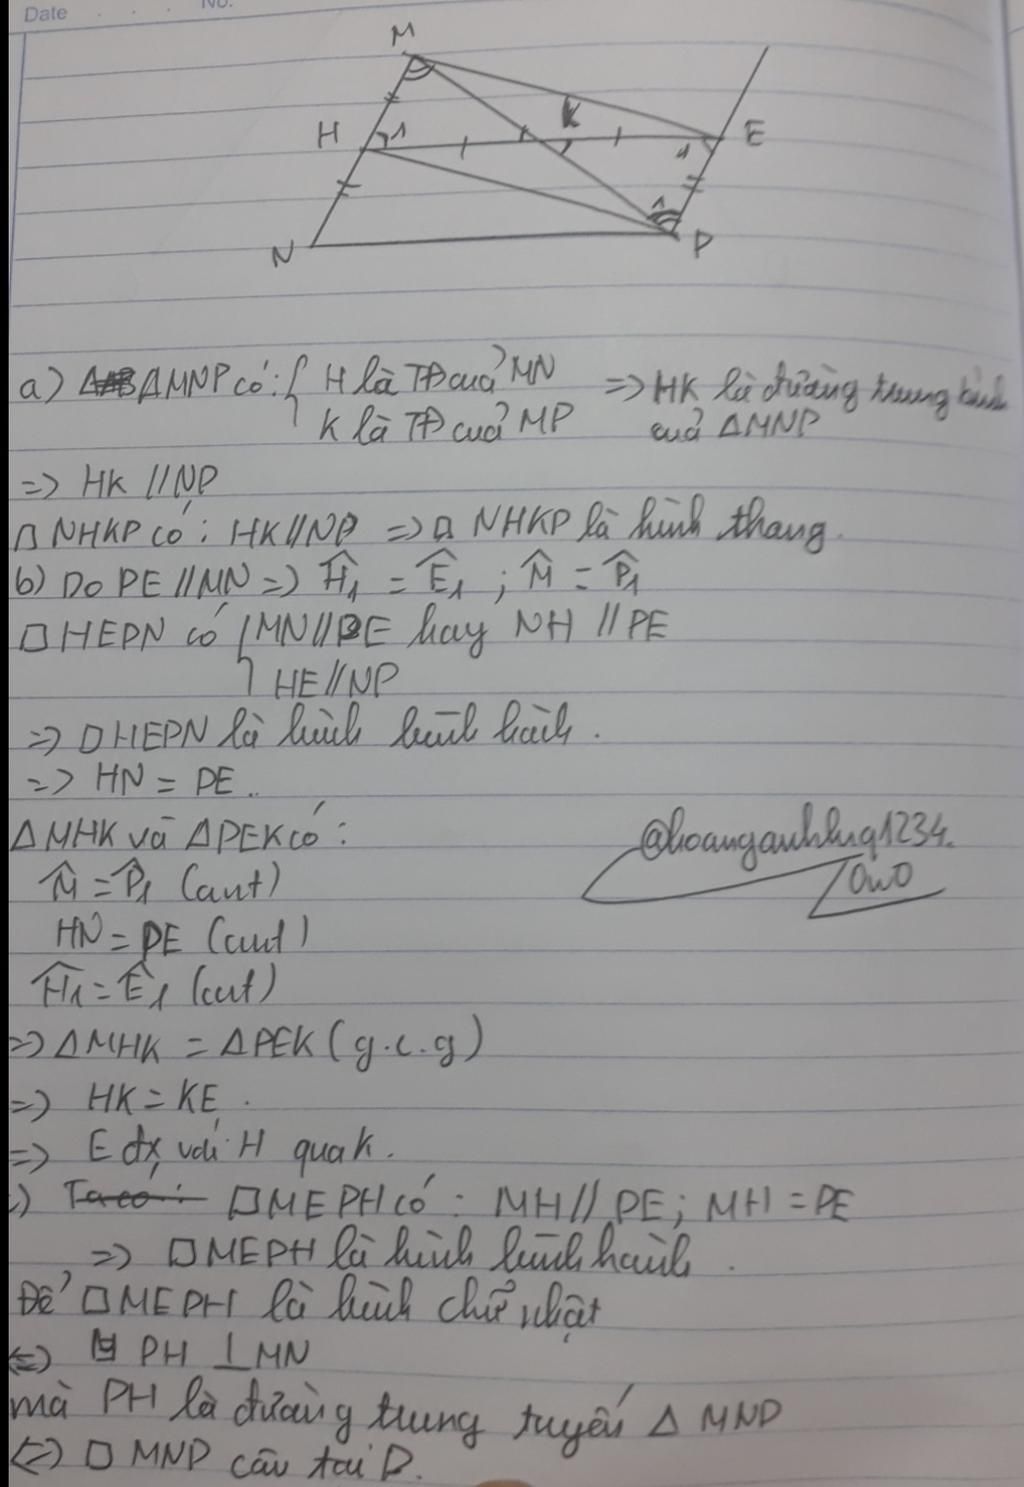 Date No.
M
H 1 K 1 E
1
N P
a) ΔMNP có: { H là TĐ của MN => HK là đường trung bình
K là TĐ của MP của ΔMNP
=> HK // NP
□ NHKP có: HK // NP => □ NHKP là hình thang.
b) Do PE // MN => Ĥ1 = Ê1 ; M̂ = P̂1
□ HEPN có { MN // PE hay NH // PE
HE // NP
=> □ HEPN là hình bình hành.
=> HN = PE.
ΔMHK và ΔPEK có:
M̂ = P̂1 (cmt)
HN = PE (cmt)
Ĥ1 = Ê1 (cmt)
=> ΔMHK = ΔPEK (g.c.g)
=> HK = KE.
=> E đx với H qua K.
c) Ta có: □ MEPH có: MH // PE; MH = PE
=> □ MEPH là hình bình hành.
Để □ MEPH là hình chữ nhật
<=> PH ⊥ MN
mà PH là đường trung tuyến Δ MNP
<=> □ MNP cân tại P.
@hoanganhhng1234.
OwO